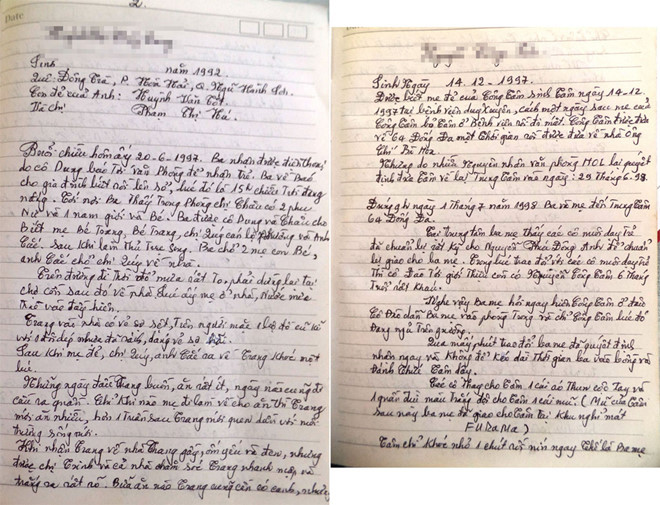 2.
Date
Sinh năm 1992.
Quê: Đông Trà, P. Hoà Hải, Q. Ngũ Hành Sơn.
Con đẻ của Anh: Huỳnh Văn
Và chị Phạm Thị
Buổi chiều hôm ấy 20-6-1997. Ba nhận được điện thoại
do cô Dung báo Tới văn Phòng để nhận trẻ. Ba về Báo
cho gia đình biết rồi lên sở, lúc đó là 15h chiều Trời đang
nắng. Tới nơi Ba Thấy Trong Phòng chị Châu có 2 phục
Nữ và 1 nam giới và Bé. Ba được cô Dung và Châu cho
Biết mẹ Bé Trang, Bé Trang, chị Quý cán bộ Phường và Anh
Các. Sau khi làm thủ Tục xong. Ba chở 2 mẹ con Bé,
anh Các chở chị Quý về nhà.
Trên đường đi Trời đổ mưa rất To, phải dừng lại tại
chợ cồn sau đó về nhà lúc ấy mẹ ở nhà, Nước mưa
Trang vào nhà có vẻ sợ sệt, Trên người mặc 1 bộ đồ cũ kĩ
Sau khi mẹ đẻ, chị Quý, anh Các ra về Trang khóc một
lúc.
Những ngày đầu Trang buồn, ăn rất ít, ngày nào cũng đi
cầu ra quần. Chỉ khi nào mẹ đi làm về cho ăn thì Trang
mới ăn nhiều, hơn 1 Tuần sau Trang mới quen dần với môi
trường sống mới.
Khi nhận Trang về nhà Trang gầy, ốm yếu và đen, nhưng
được chị Trinh và cả nhà chăm sóc Trang nhanh mập và
trắng ra rất rõ. Bữa ăn nào Trang cũng cần có canh, nhưng
Sinh Ngày 14.12.1997.
Được biết mẹ đẻ của Công Tâm sinh Tâm ngày 14-12-
1997 tại bệnh viện Duy Xuyên, cách một ngày sau mẹ của
Công Tâm bỏ Tâm ở Bệnh viện rồi đi mất. Công Tâm được đưa
về 64 Đống Đa một thời gian rồi được đưa về nhà Ông
Chí Bà Hoa.
Nhưng do nhiều Nguyên nhân văn phòng HOL lại quyết
định đưa Tâm về lại Trung Tâm vào ngày: 29 Tháng 6-98.
Đúng 9h ngày 1 Tháng 7 năm 1998 Ba và mẹ đến Trung Tâm
64 Đống Đa.
Tại trung tâm ba mẹ thấy các cô nuôi dạy trẻ
đã chuẩn bị rất kỹ cho Nguyễn Phúc Đông Anh để chuẩn
bị giao cho ba mẹ. Trong lúc trao đổi với các cô nuôi dạy trẻ
Thì cô Đào Tới giới Thiệu còn có Nguyễn Công Tâm 6 Tháng
Tuổi rất khoẻ.
Nghe vậy Ba mẹ hỏi ngay hiện Công Tâm ở đâu
Cô Đào dẫn Ba mẹ vào phòng Trong và chỉ Công Tâm lúc đó
đang ngủ Trên giường.
Qua mấy phút trao đổi ba mẹ đã quyết định
nhận ngay và Không để kéo dài Thời gian ba vào bồng và
đánh Thức Tâm dậy.
Các cô Thay cho Tâm 1 cái áo Thun cộc Tay và
1 quần đùi màu Trắng đỏ cho Tâm 1 cái mũ (Mũ của Tâm
sau này ba mẹ đã giao cho Tâm tại khu nghỉ mát
FURAMA)
Tâm chỉ khóc nhỏ 1 chút rồi nín ngay Thế là Ba mẹ